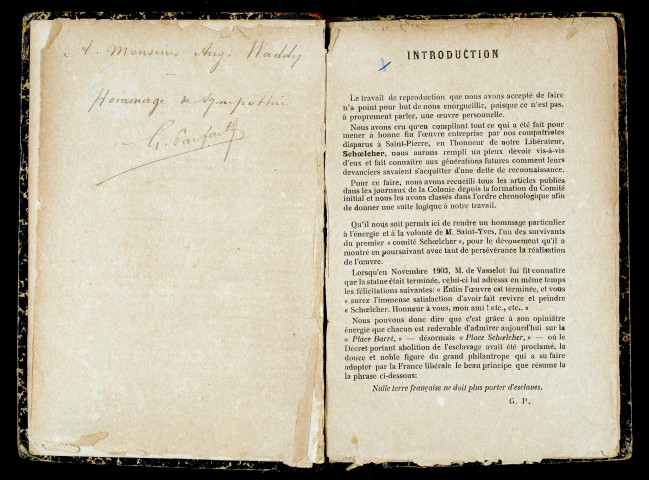 A. Monsieur Aug. Waddy
Hommage de sympathie
G. Parfait
INTRODUCTION
Le travail de reproduction que nous avons accepté de faire
n'a point pour but de nous enorgueillir, puisque ce n'est pas,
à proprement parler, une œuvre personnelle.
Nous avons cru qu'en compilant tout ce qui a été fait pour
mener à bonne fin l'œuvre entreprise par nos compatriotes
disparus à Saint-Pierre, en l'honneur de notre Libérateur,
Schœlcher, nous aurons rempli un pieux devoir vis-à-vis
d'eux et fait connaître aux générations futures comment leurs
devanciers savaient s'acquitter d'une dette de reconnaissance.
Pour ce faire, nous avons recueilli tous les articles publiés
dans les journaux de la Colonie depuis la formation du Comité
initial et nous les avons classés dans l'ordre chronologique afin
de donner une suite logique à notre travail.
Qu'il nous soit permis ici de rendre un hommage particulier
à l'énergie et à la volonté de M. Saint-Yves, l'un des survivants
du premier « comité Schœlcher », pour le dévouement qu'il a
montré en poursuivant avec tant de persévérance la réalisation
de l'œuvre.
Lorsqu'en Novembre 1903, M. de Vasselot lui fit connaître
que la statue était terminée, celui-ci lui adressa en même temps
les félicitations suivantes: « Enfin l'œuvre est terminée, et vous
« aurez l'immense satisfaction d'avoir fait revivre et peindre
« Schœlcher. Honneur à vous, mon ami ! etc., etc.. »
Nous pouvons donc dire que c'est grâce à son opiniâtre
énergie que chacun est redevable d'admirer aujourd'hui sur la
« Place Barré, » — désormais « Place Schœlcher, » — où le
Décret portant abolition de l'esclavage avait été proclamé, la
douce et noble figure du grand philantrope qui a su faire
adopter par la France libérale le beau principe que résume la
la phrase ci-dessous:
Nulle terre française ne doit plus porter d'esclaves.
G. P.